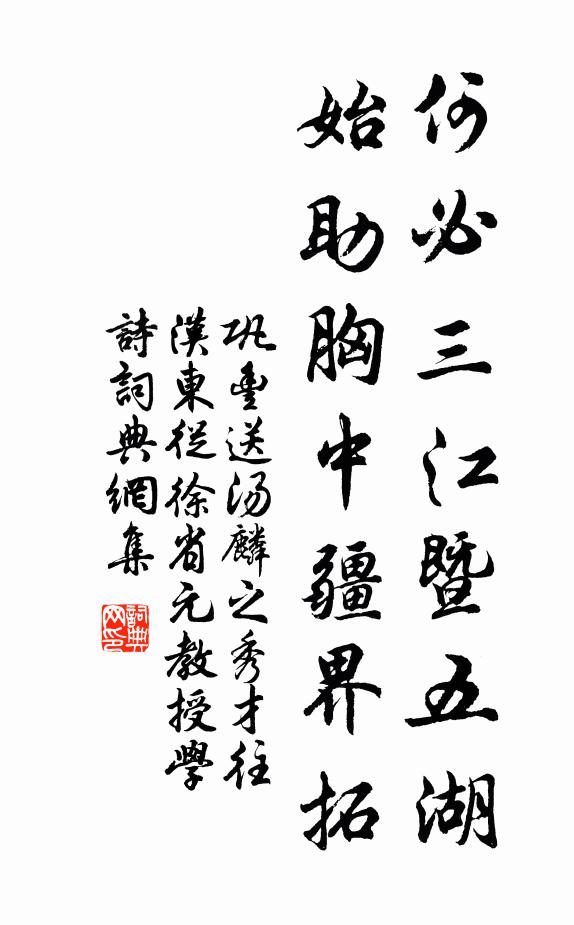 何必三江暨五湖
始助胸中疆界拓
巩豊送汤麟之秀才往
漢東從徐省元教授學
詩詞典網集
詞典
网印